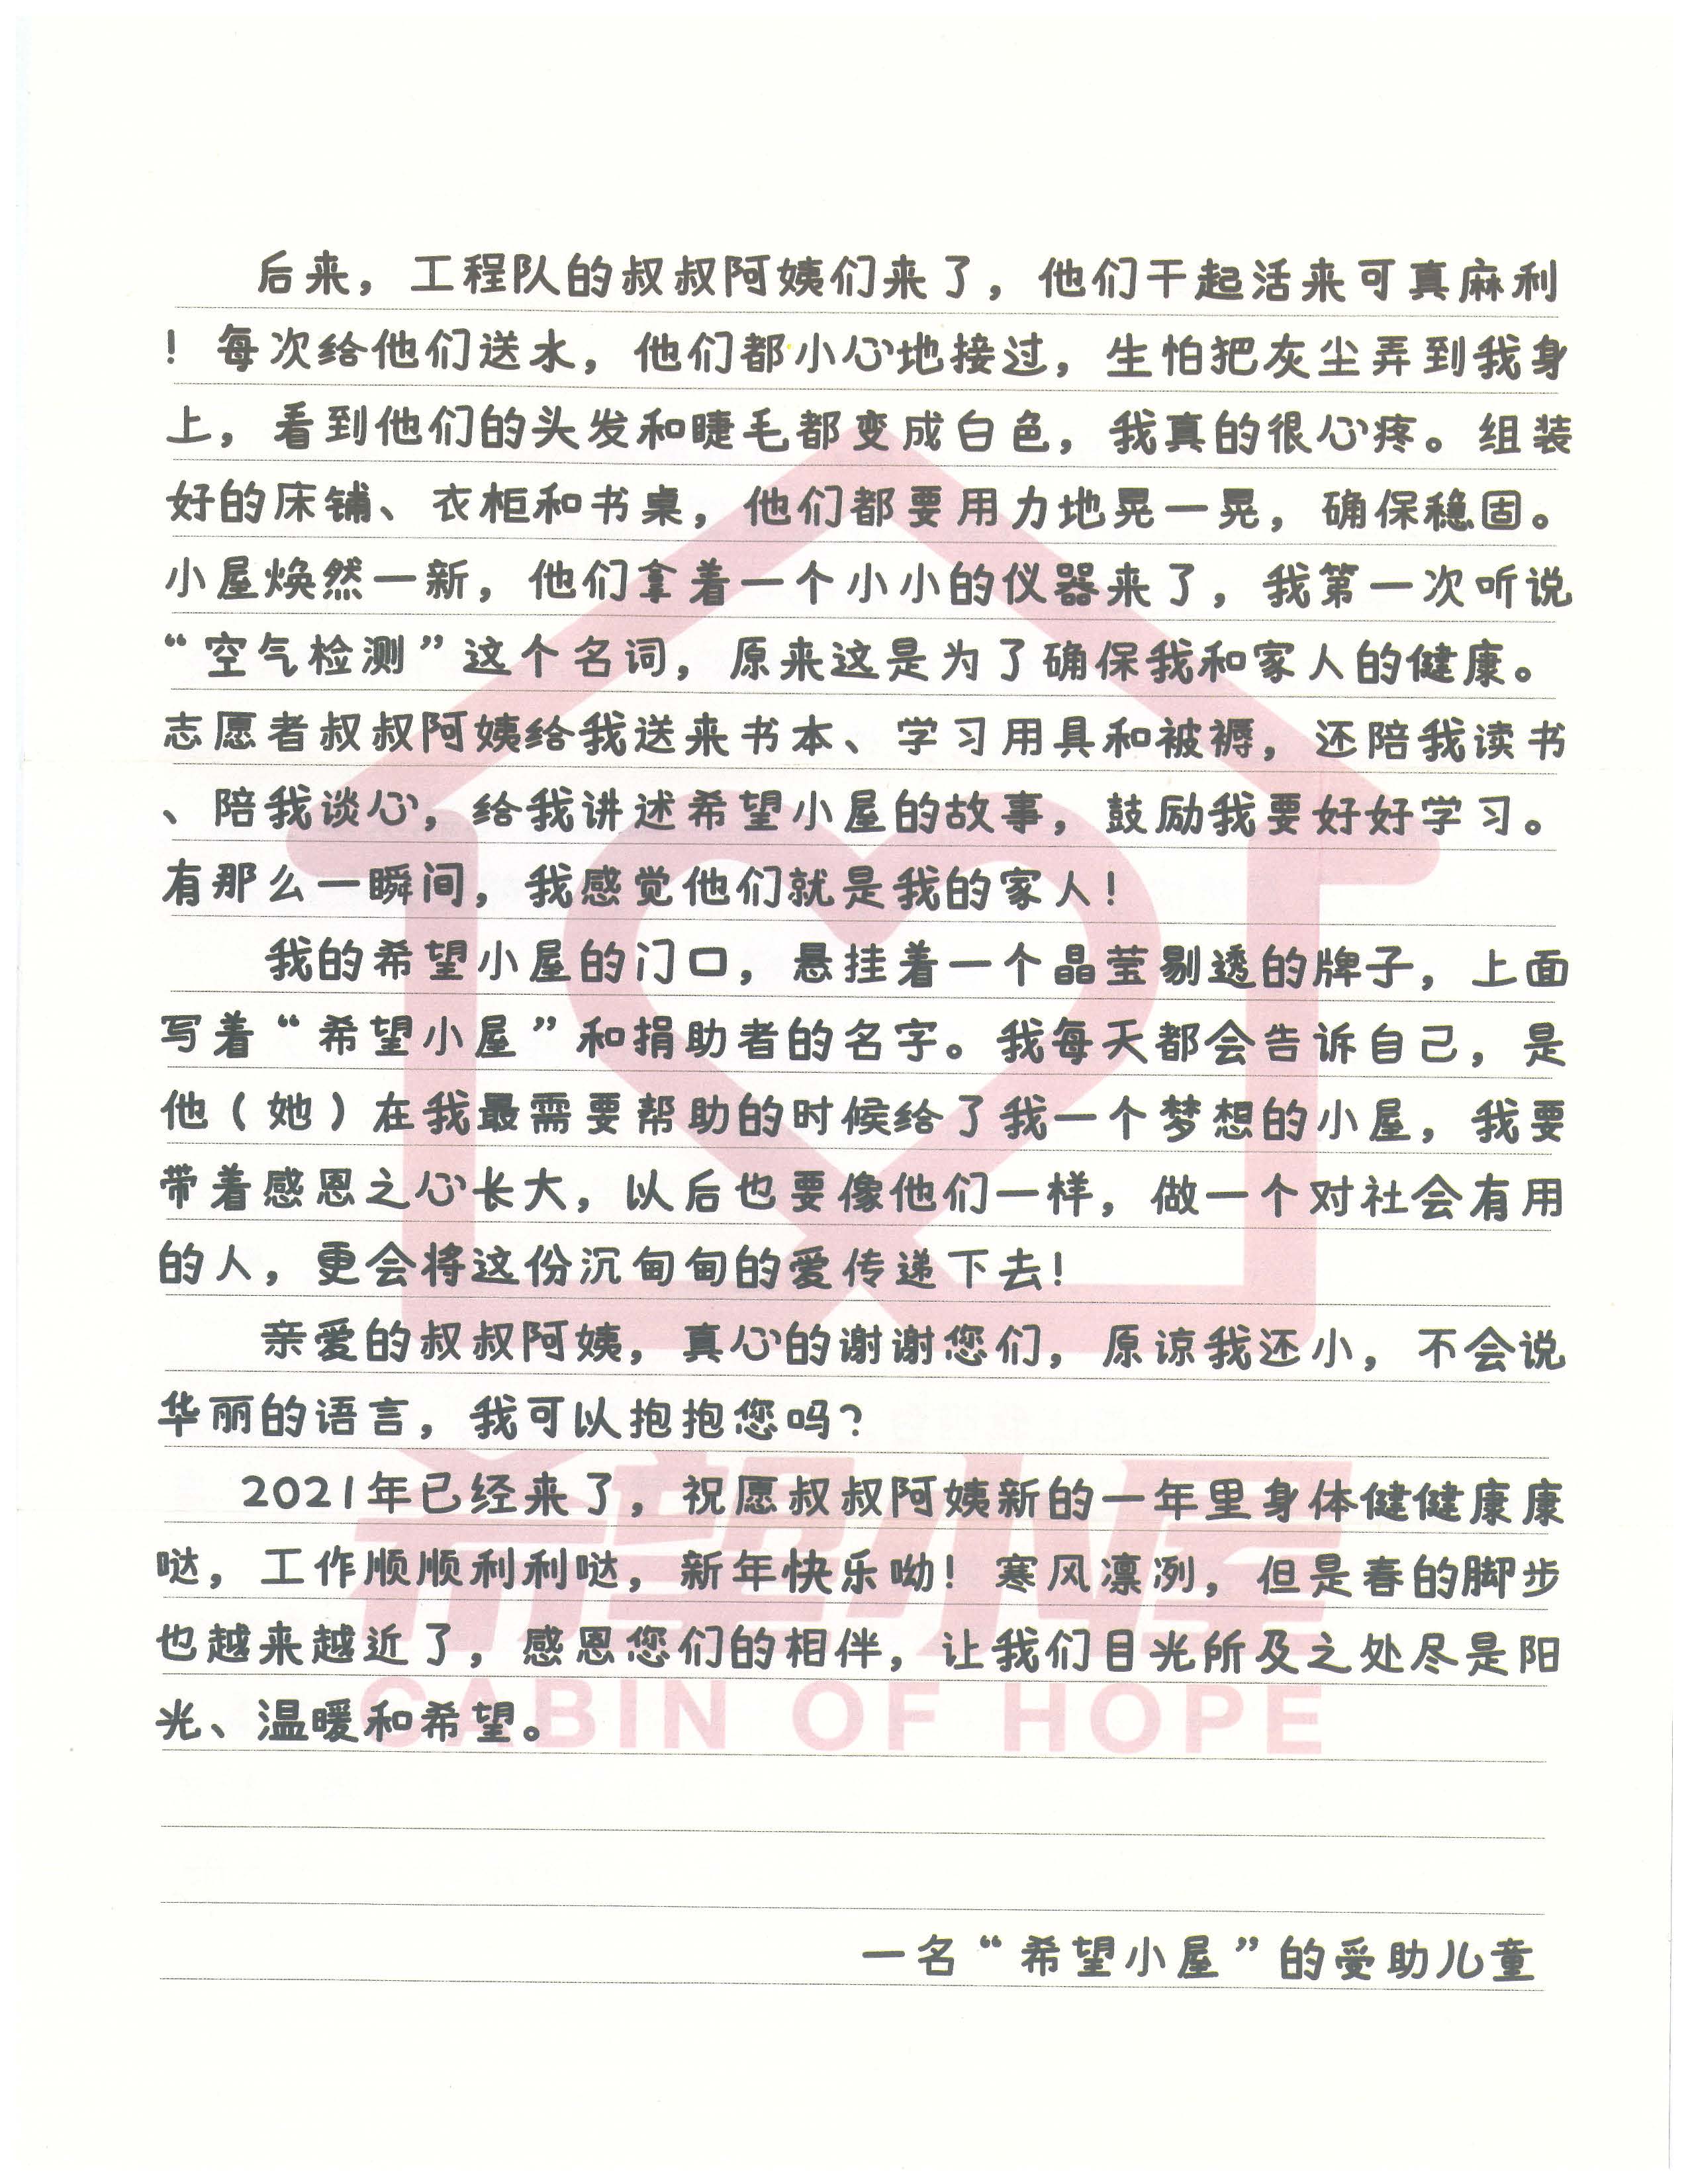 后来，工程队的叔叔阿姨们来了，他们干起活来可真麻利
！每次给他们送水，他们都小心地接过，生怕把灰尘弄到我身
上，看到他们的头发和睫毛都变成白色，我真的很心疼。组装
好的床铺、衣柜和书桌，他们都要用力地晃一晃，确保稳固。
小屋焕然一新，他们拿着一个小小的仪器来了，我第一次听说
“空气检测”这个名词，原来这是为了确保我和家人的健康。
志愿者叔叔阿姨给我送来书本、学习用具和被褥，还陪我读书
、陪我谈心，给我讲述希望小屋的故事，鼓励我要好好学习。
有那么一瞬间，我感觉他们就是我的家人！
我的希望小屋的门口，悬挂着一个晶莹剔透的牌子，上面
写着“希望小屋”和捐助者的名字。我每天都会告诉自己，是
他（她）在我最需要帮助的时候给了我一个梦想的小屋，我要
带着感恩之心长大，以后也要像他们一样，做一个对社会有用
的人，更会将这份沉甸甸的爱传递下去！
亲爱的叔叔阿姨，真心的谢谢您们，原谅我还小，不会说
华丽的语言，我可以抱抱您吗？
2021年已经来了，祝愿叔叔阿姨新的一年里身体健健康康
哒，工作顺顺利利哒，新年快乐呦！寒风凛冽，但是春的脚步
也越来越近了，感恩您们的相伴，让我们目光所及之处尽是阳
光、温暖和希望。
希望小屋
CABIN OF HOPE
一名“希望小屋”的受助儿童